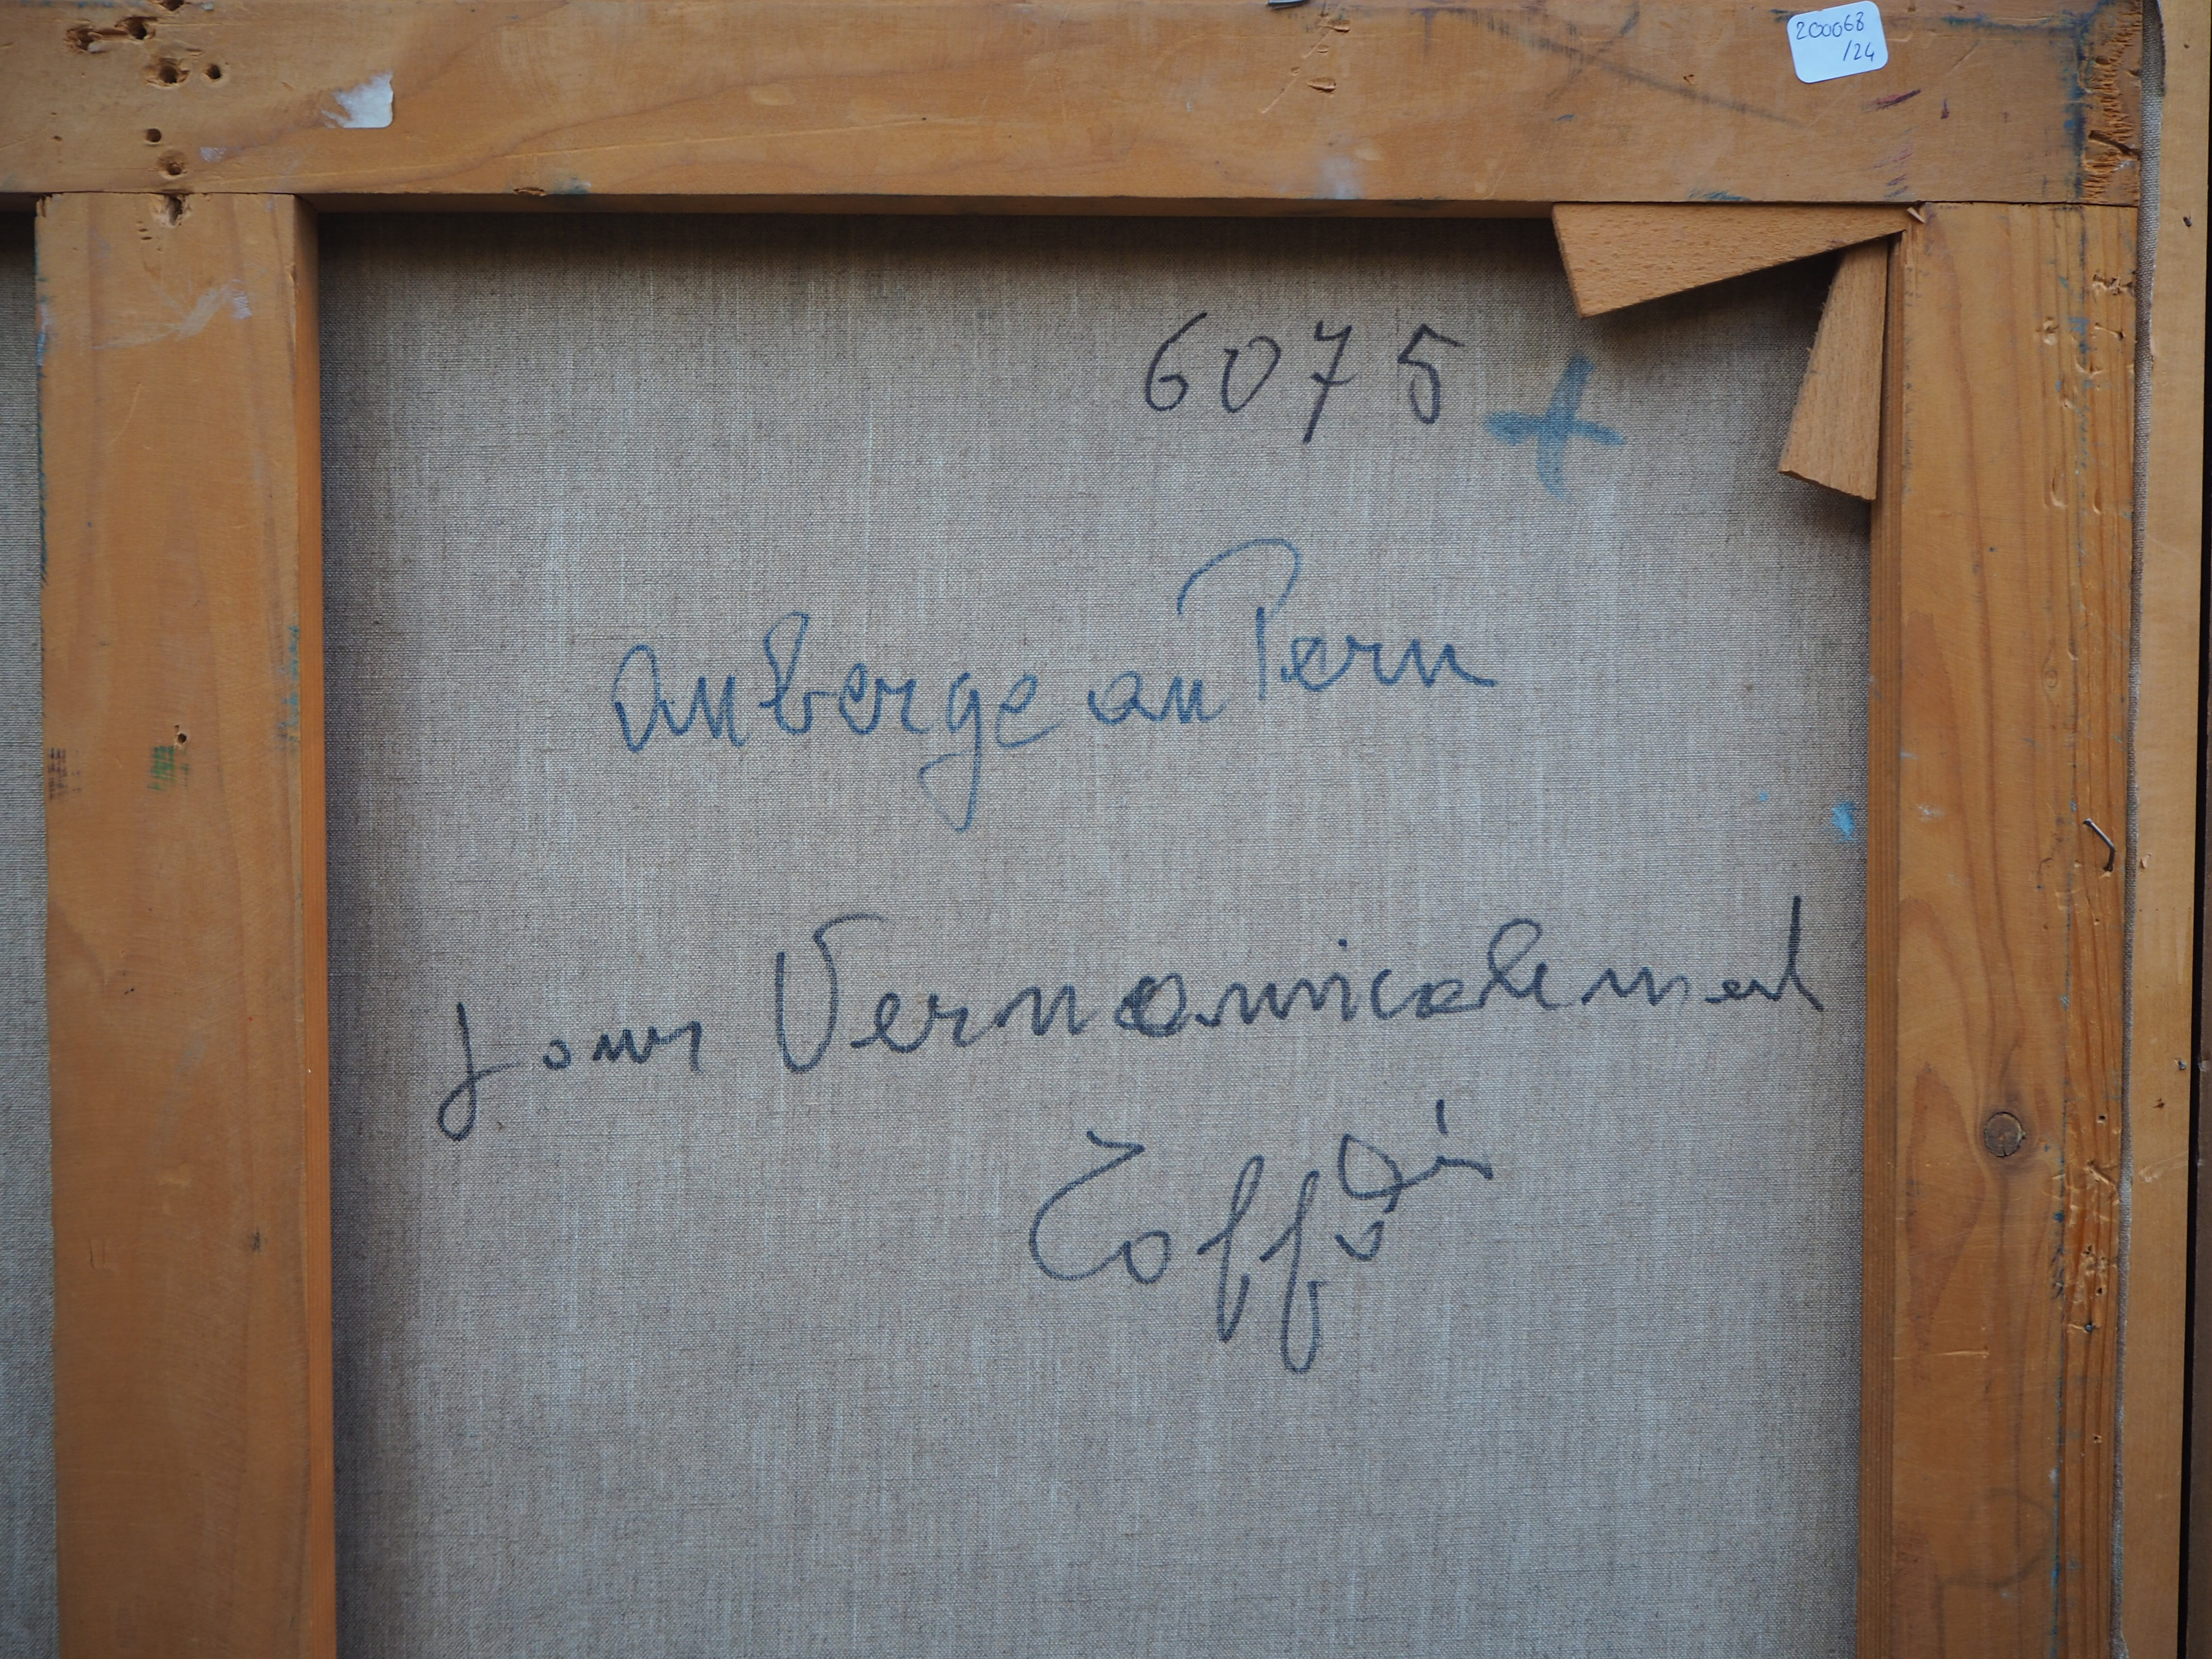 200068
/24
6075 +
auberge au Peru
pour Vern amicalement
Toffoli